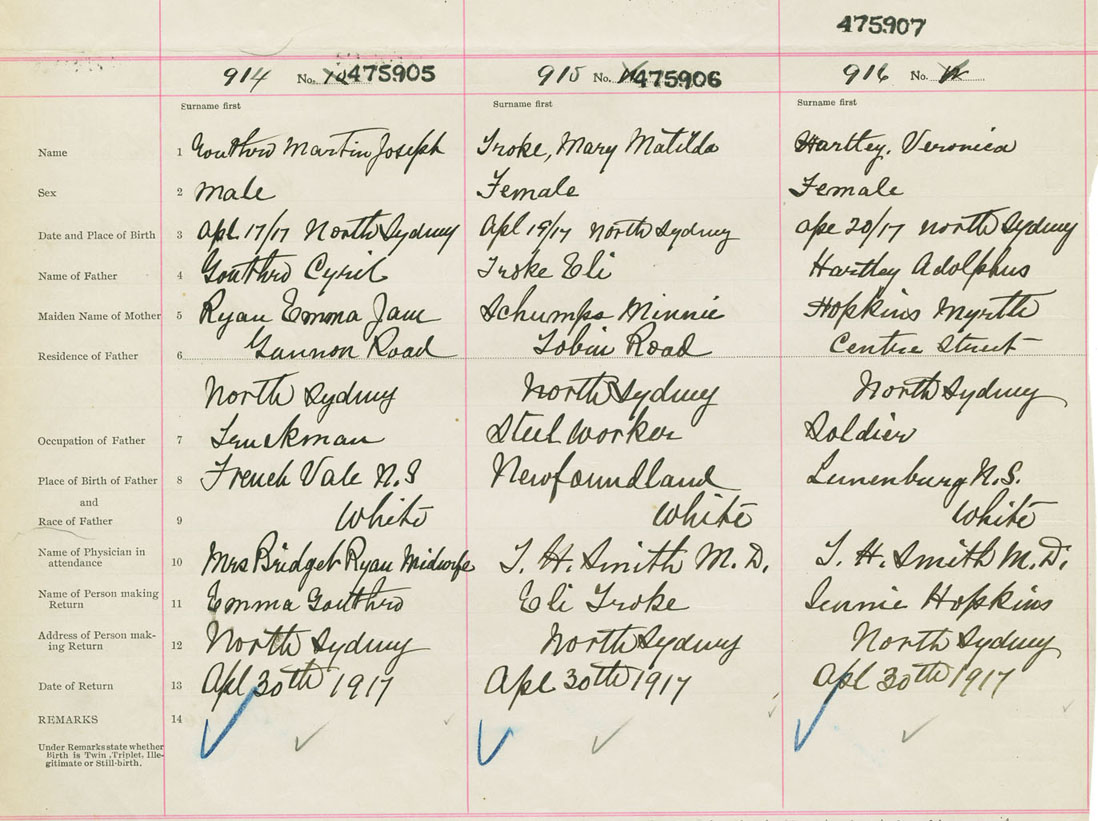 475907
914 No. 475905 915 No. 475906 916 No.
Surname first Surname first Surname first
Name 1 Gouthro Martin Joseph Troke, Mary Matilda Hartley, Veronica
Sex 2 male Female Female
Date and Place of Birth 3 Apl 17/17 North Sydney Apl 19/17 North Sydney Ape 20/17 North Sydney
Name of Father 4 Gouthro Cyril Troke Eli Hartley Adolphus
Maiden Name of Mother 5 Ryan Emma Jane Schumps Minnie Hopkins Myrtle
Residence of Father 6 Gannon Road Tobin Road Centre Street
North Sydney North Sydney North Sydney
Occupation of Father 7 Truckman Steel Worker Soldier
Place of Birth of Father 8 French Vale N.S Newfoundland Lunenburg N.S.
and
Race of Father 9 White White White
Name of Physician in
attendance 10 Mrs Bridget Ryan Midwife T. H. Smith M.D. T. H. Smith M.D.
Name of Person making
Return 11 Emma Gouthro Eli Troke Hopkins
Address of Person mak-
ing Return 12 North Sydney North Sydney North Sydney
Date of Return 13 Apl 30th 1917 Apl 30th 1917 Apl 30th 1917
REMARKS 14
Under Remarks state whether
Birth is Twin, Triplet, Ille-
gitimate or Still-birth.